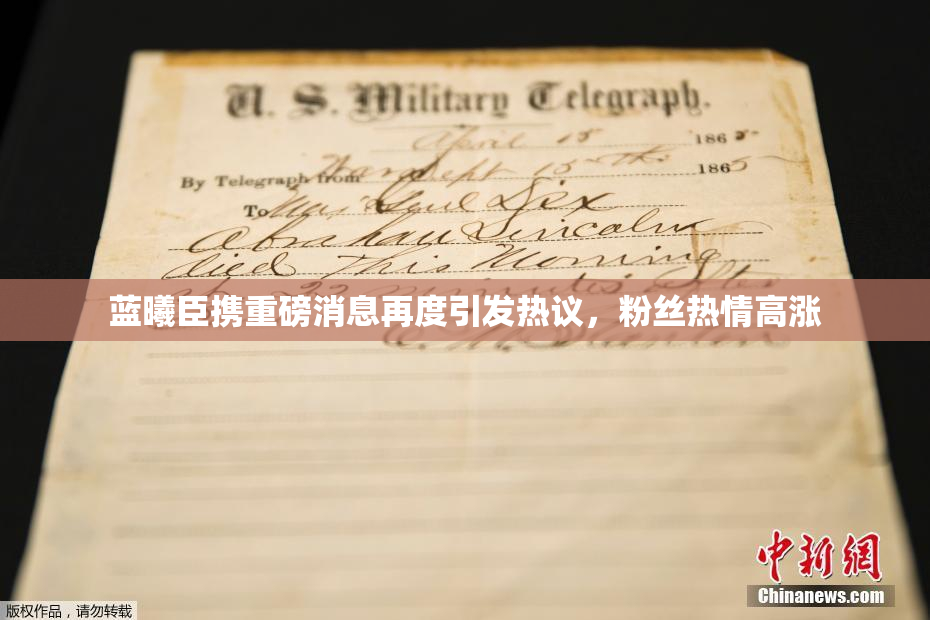 U. S. Military Telegraph.
April 15 1865
By Telegraph from War Dept 15th 1865
To Maj Genl Dix
Abraham Lincoln
died This Morning
at 22 minutes after
蓝曦臣携重磅消息再度引发热议，粉丝热情高涨
E. M. Stanton
中新网
Chinanews.com
版权作品，请勿转载